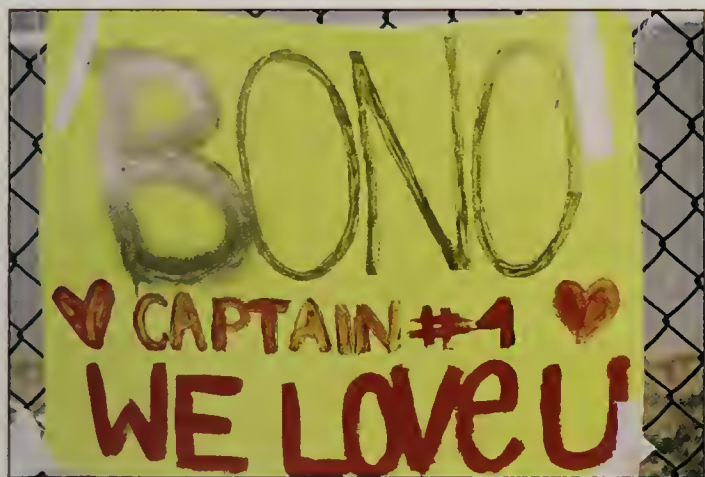 BONO
CAPTAIN #1
WE LOVE U